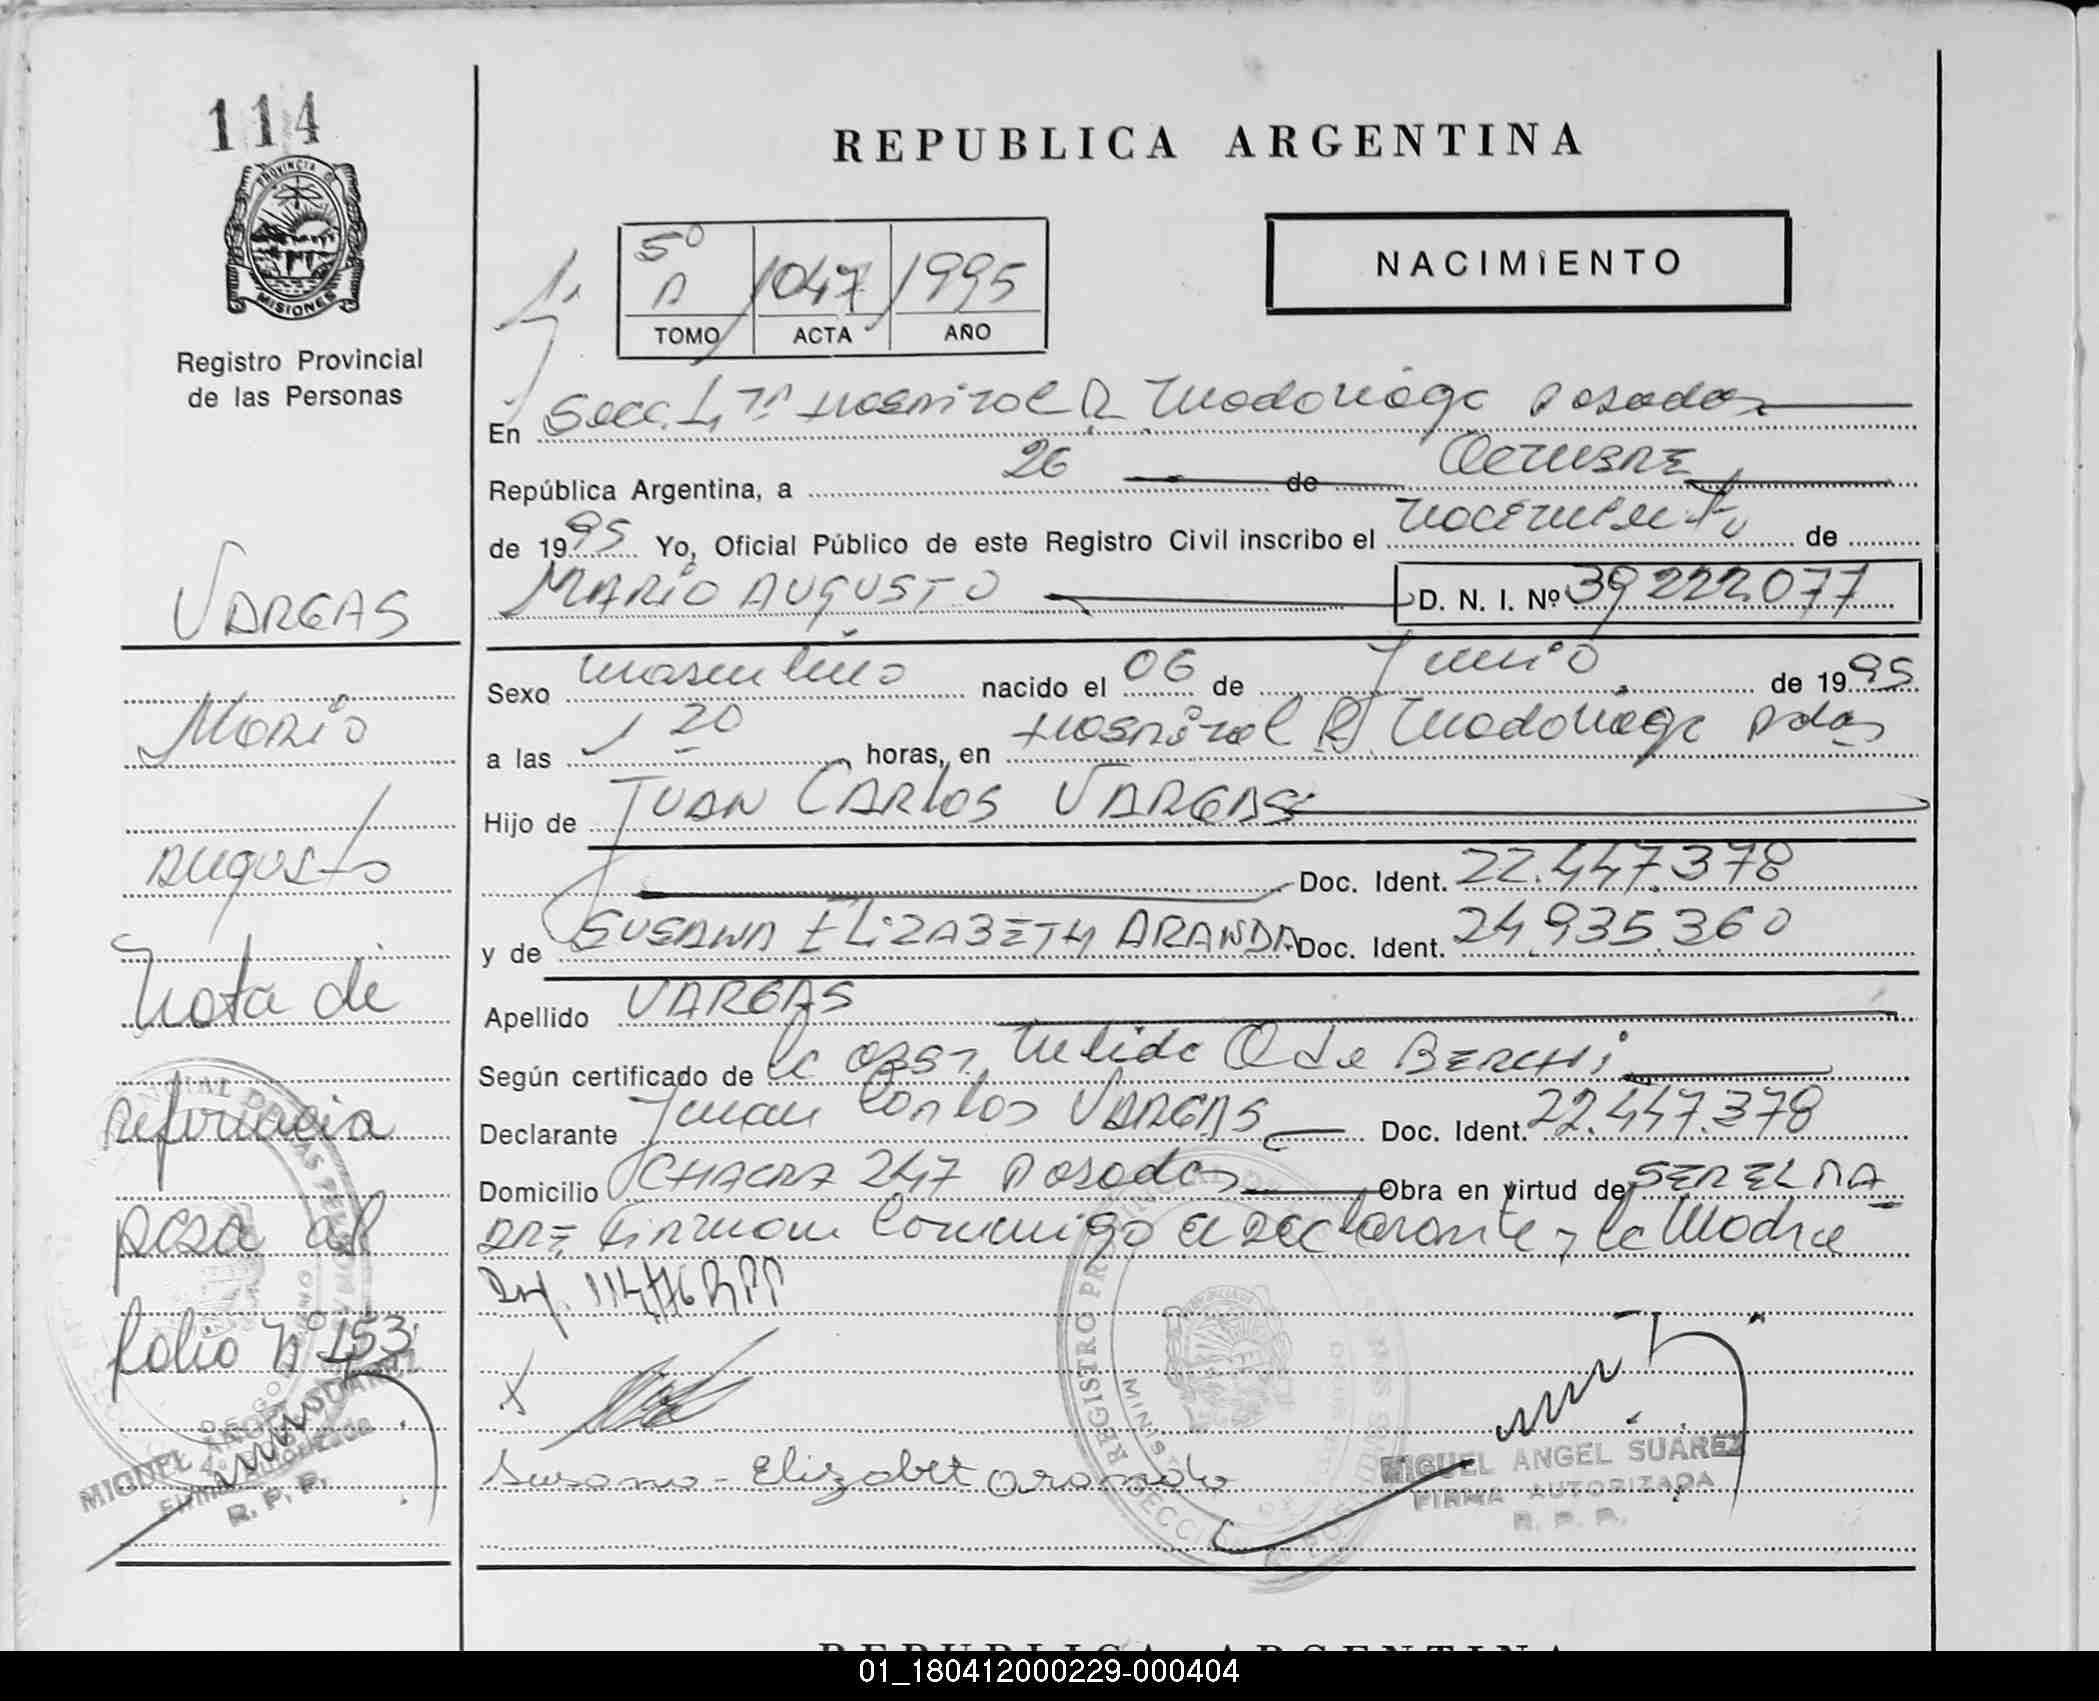 114
PROVINCIA DE
MISIONES
Registro Provincial
de las Personas
REPUBLICA ARGENTINA
NACIMIENTO
5º 1047 1995
TOMO ACTA AÑO
En Secc. Hospital R Madariaga Posadas
República Argentina, a 26 de Octubre
de 1995 Yo, Oficial Público de este Registro Civil inscribo el nacimiento de
MARIO AUGUSTO D. N. I. Nº 39 222.077
Sexo masculino nacido el 06 de Junio de 1995
a las 1 20 horas, en Hospital R Madariaga Pdas
Hijo de JUAN CARLOS VARGAS
Doc. Ident. 22.447.378
y de SUSANA ELIZABETH ARANDA Doc. Ident. 24.935.360
Apellido VARGAS
Según certificado de la Obst. Nelida O de BERCHI
Declarante Juan Carlos VARGAS Doc. Ident. 22.447.378
Domicilio CHACRA 247 Posadas Obra en virtud de SER EL PA
DRE Firman Conmigo el declarante y la Madre
X
Susana - Elizabet aranda
MIGUEL ANGEL SUAREZ
FIRMA AUTORIZADA
R. P. P.
VARGAS
Mario
Augusto
Nota de
referencia
pasa al
folio Nº 153
MIGUEL ANGEL SUAREZ
R. P. P.
REPUBLICA ARGENTINA
01_180412000229-000404